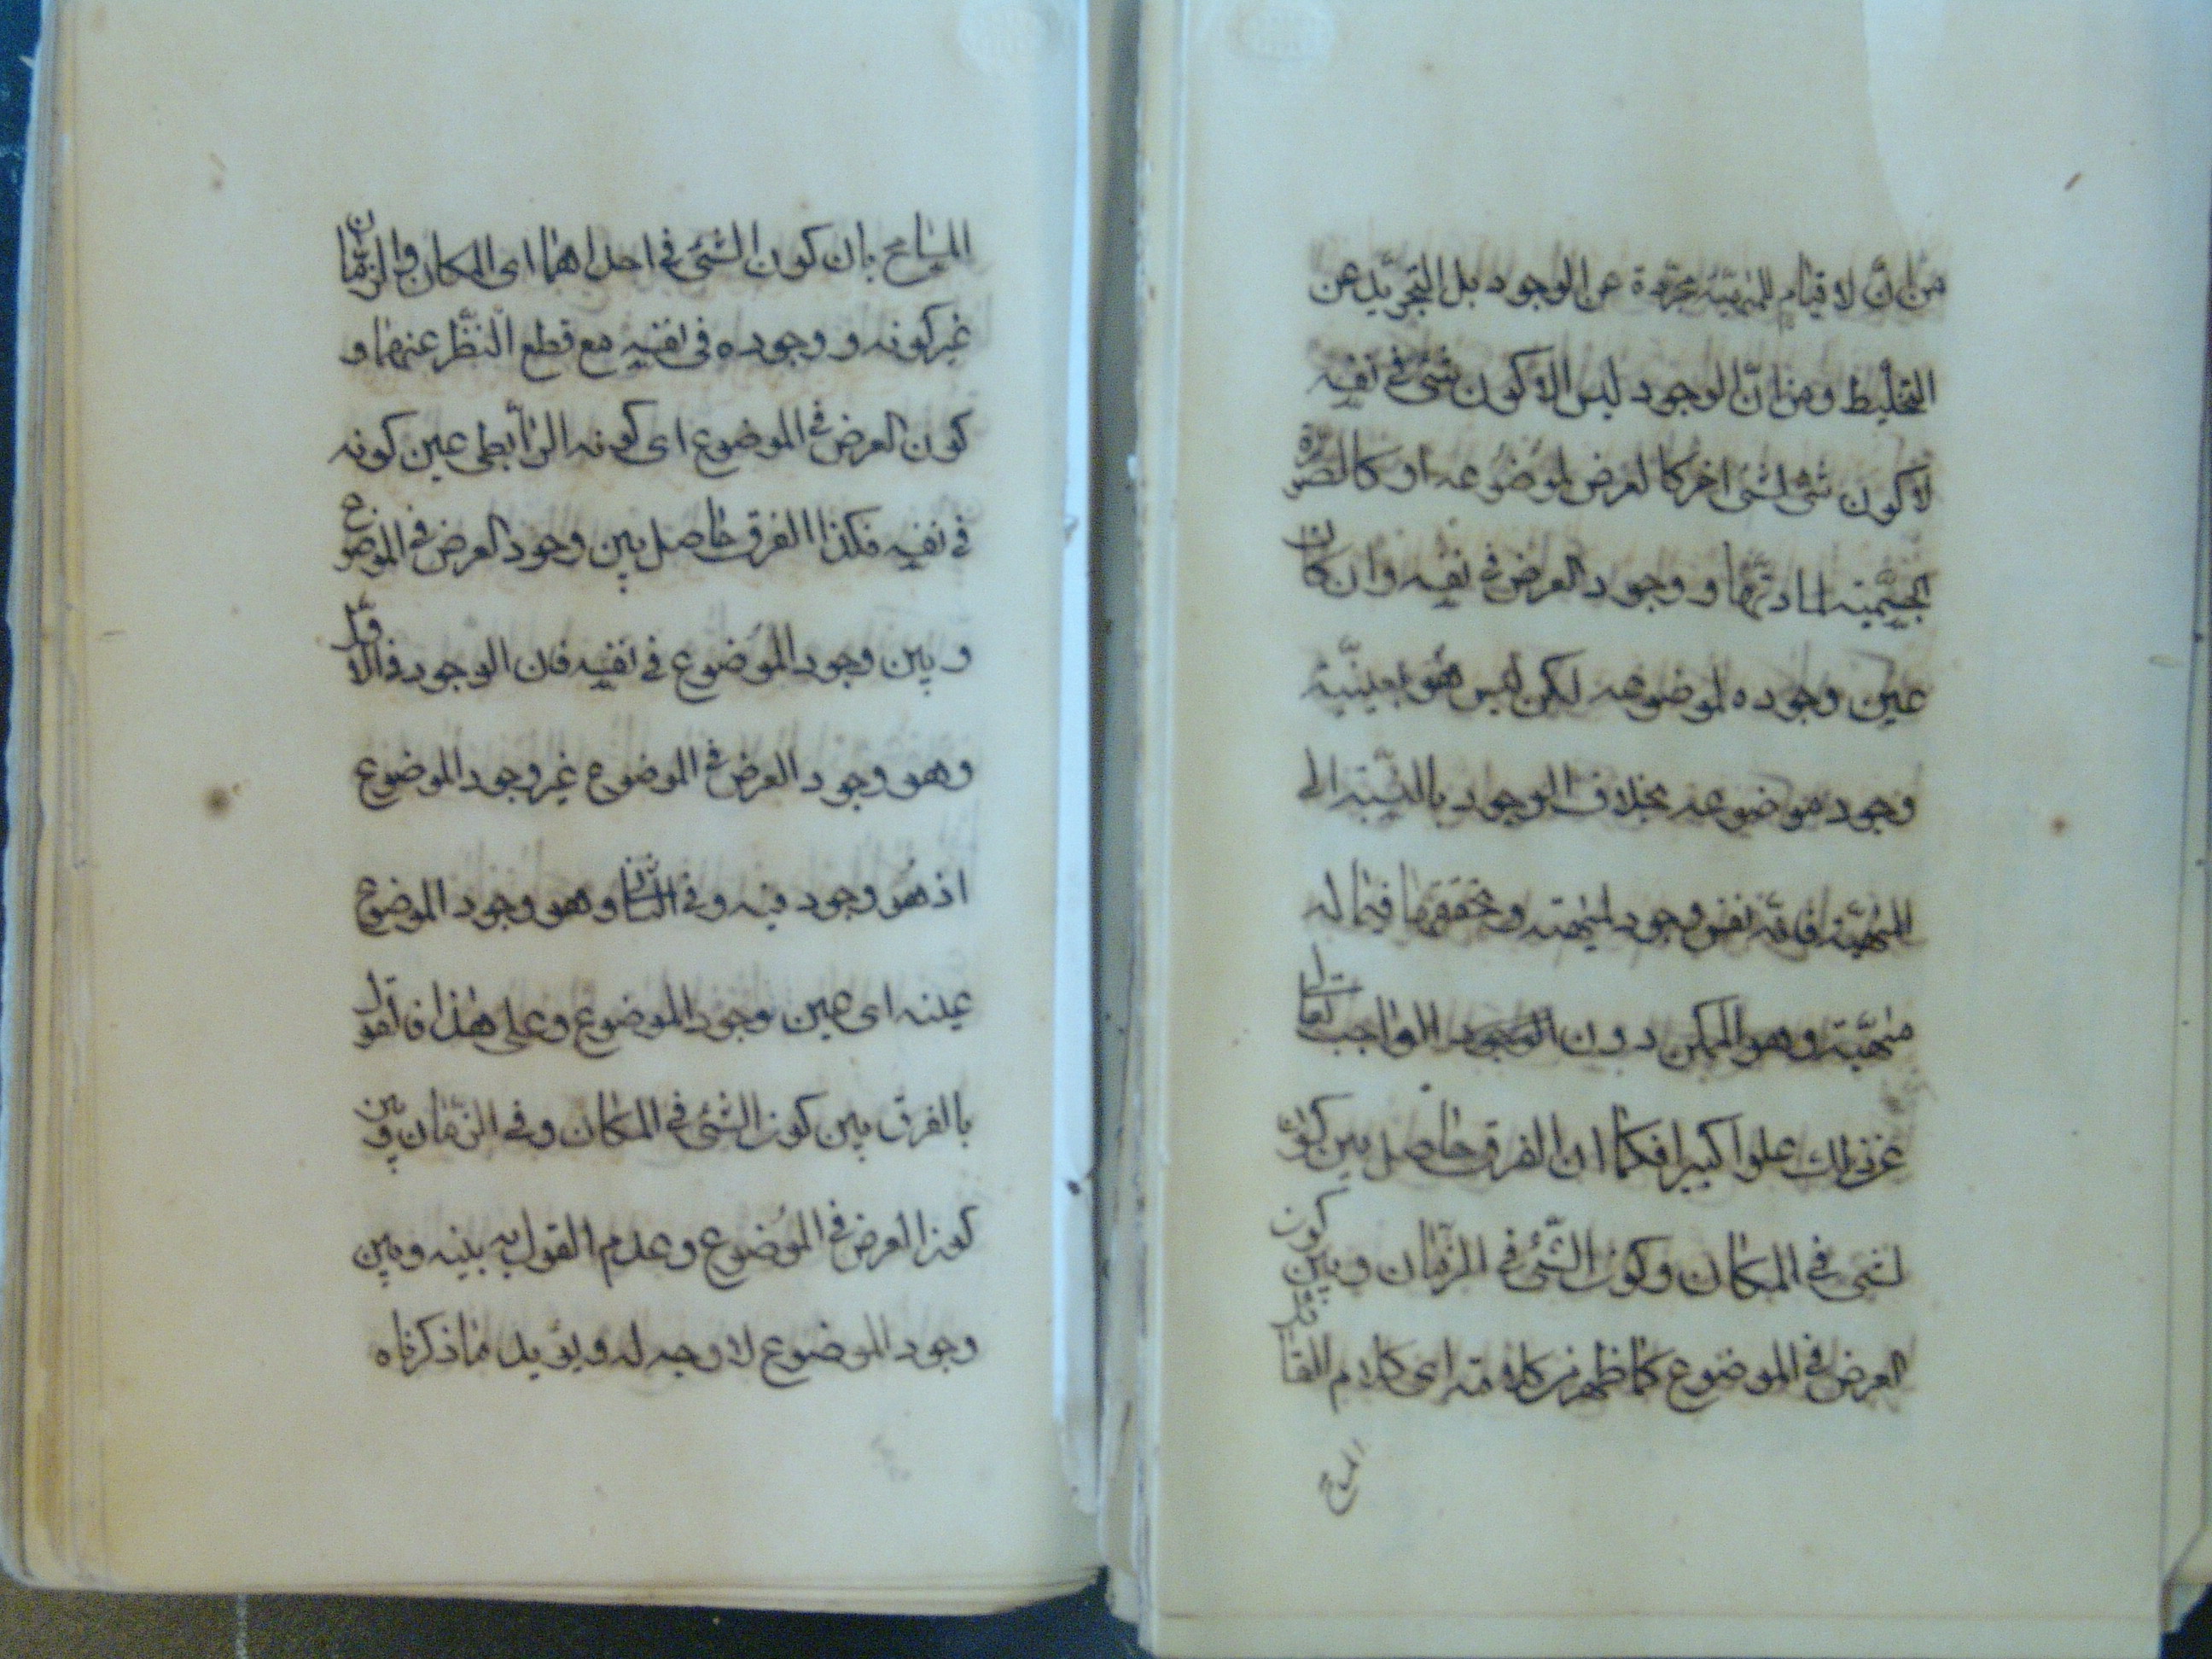 من ان لا قيام للمهيّة مجرّدة عن الوجود بل التجريد عن
التخليط ومن انّ الوجود ليس الا كون شئ فى نفسه
لا كون شئ لشئ اخر كالعرض لموضوعه او كالصورة
الجسميّة لمادتها و وجود العرض فى نفسه وان كان
عين وجوده لموضوعه لكن ليس هو بعينيّة
وجود موضوعه بخلاف الوجود بالنسبة الى
المهيّة فانّه نفس وجود المهيّة وتحققها فيما له
مهيّة وهو الممكن دون الوجود الواجب تعالى
عن ذلك علوا كبيرا فكما ان الفرق حاصل بين كون
الشئ فى المكان وكون الشّئ فى الزمان وبين كون
العرض فى الموضوع كما ظهر من كلامه اى كلام الفاضل
المباح
بان كون الشئ فى احداهما اى المكان والزمان
غير كونه و وجوده فى نفسه مع قطع النّظر عنهما و
كون العرض فى الموضوع اى كونه الرّابطى عين كونه
فى نفسه فكذا الفرق حاصل بين وجود العرض فى الموضوع
و بين وجود الموضوع فى نفسه فان الوجود فى الاوّل
وهو وجود العرض فى الموضوع غير وجود الموضوع
اذ هو وجود فيه و فى الثّانى وهو وجود الموضوع
عينه اى عين وجود الموضوع وعلى هذا فالقول
بالفرق بين كون الشّئ فى المكان وفى الزّمان وبين
كون العرض فى الموضوع وعدم القول به بينه وبين
وجود الموضوع لا وجه له ويؤيد ما ذكرناه